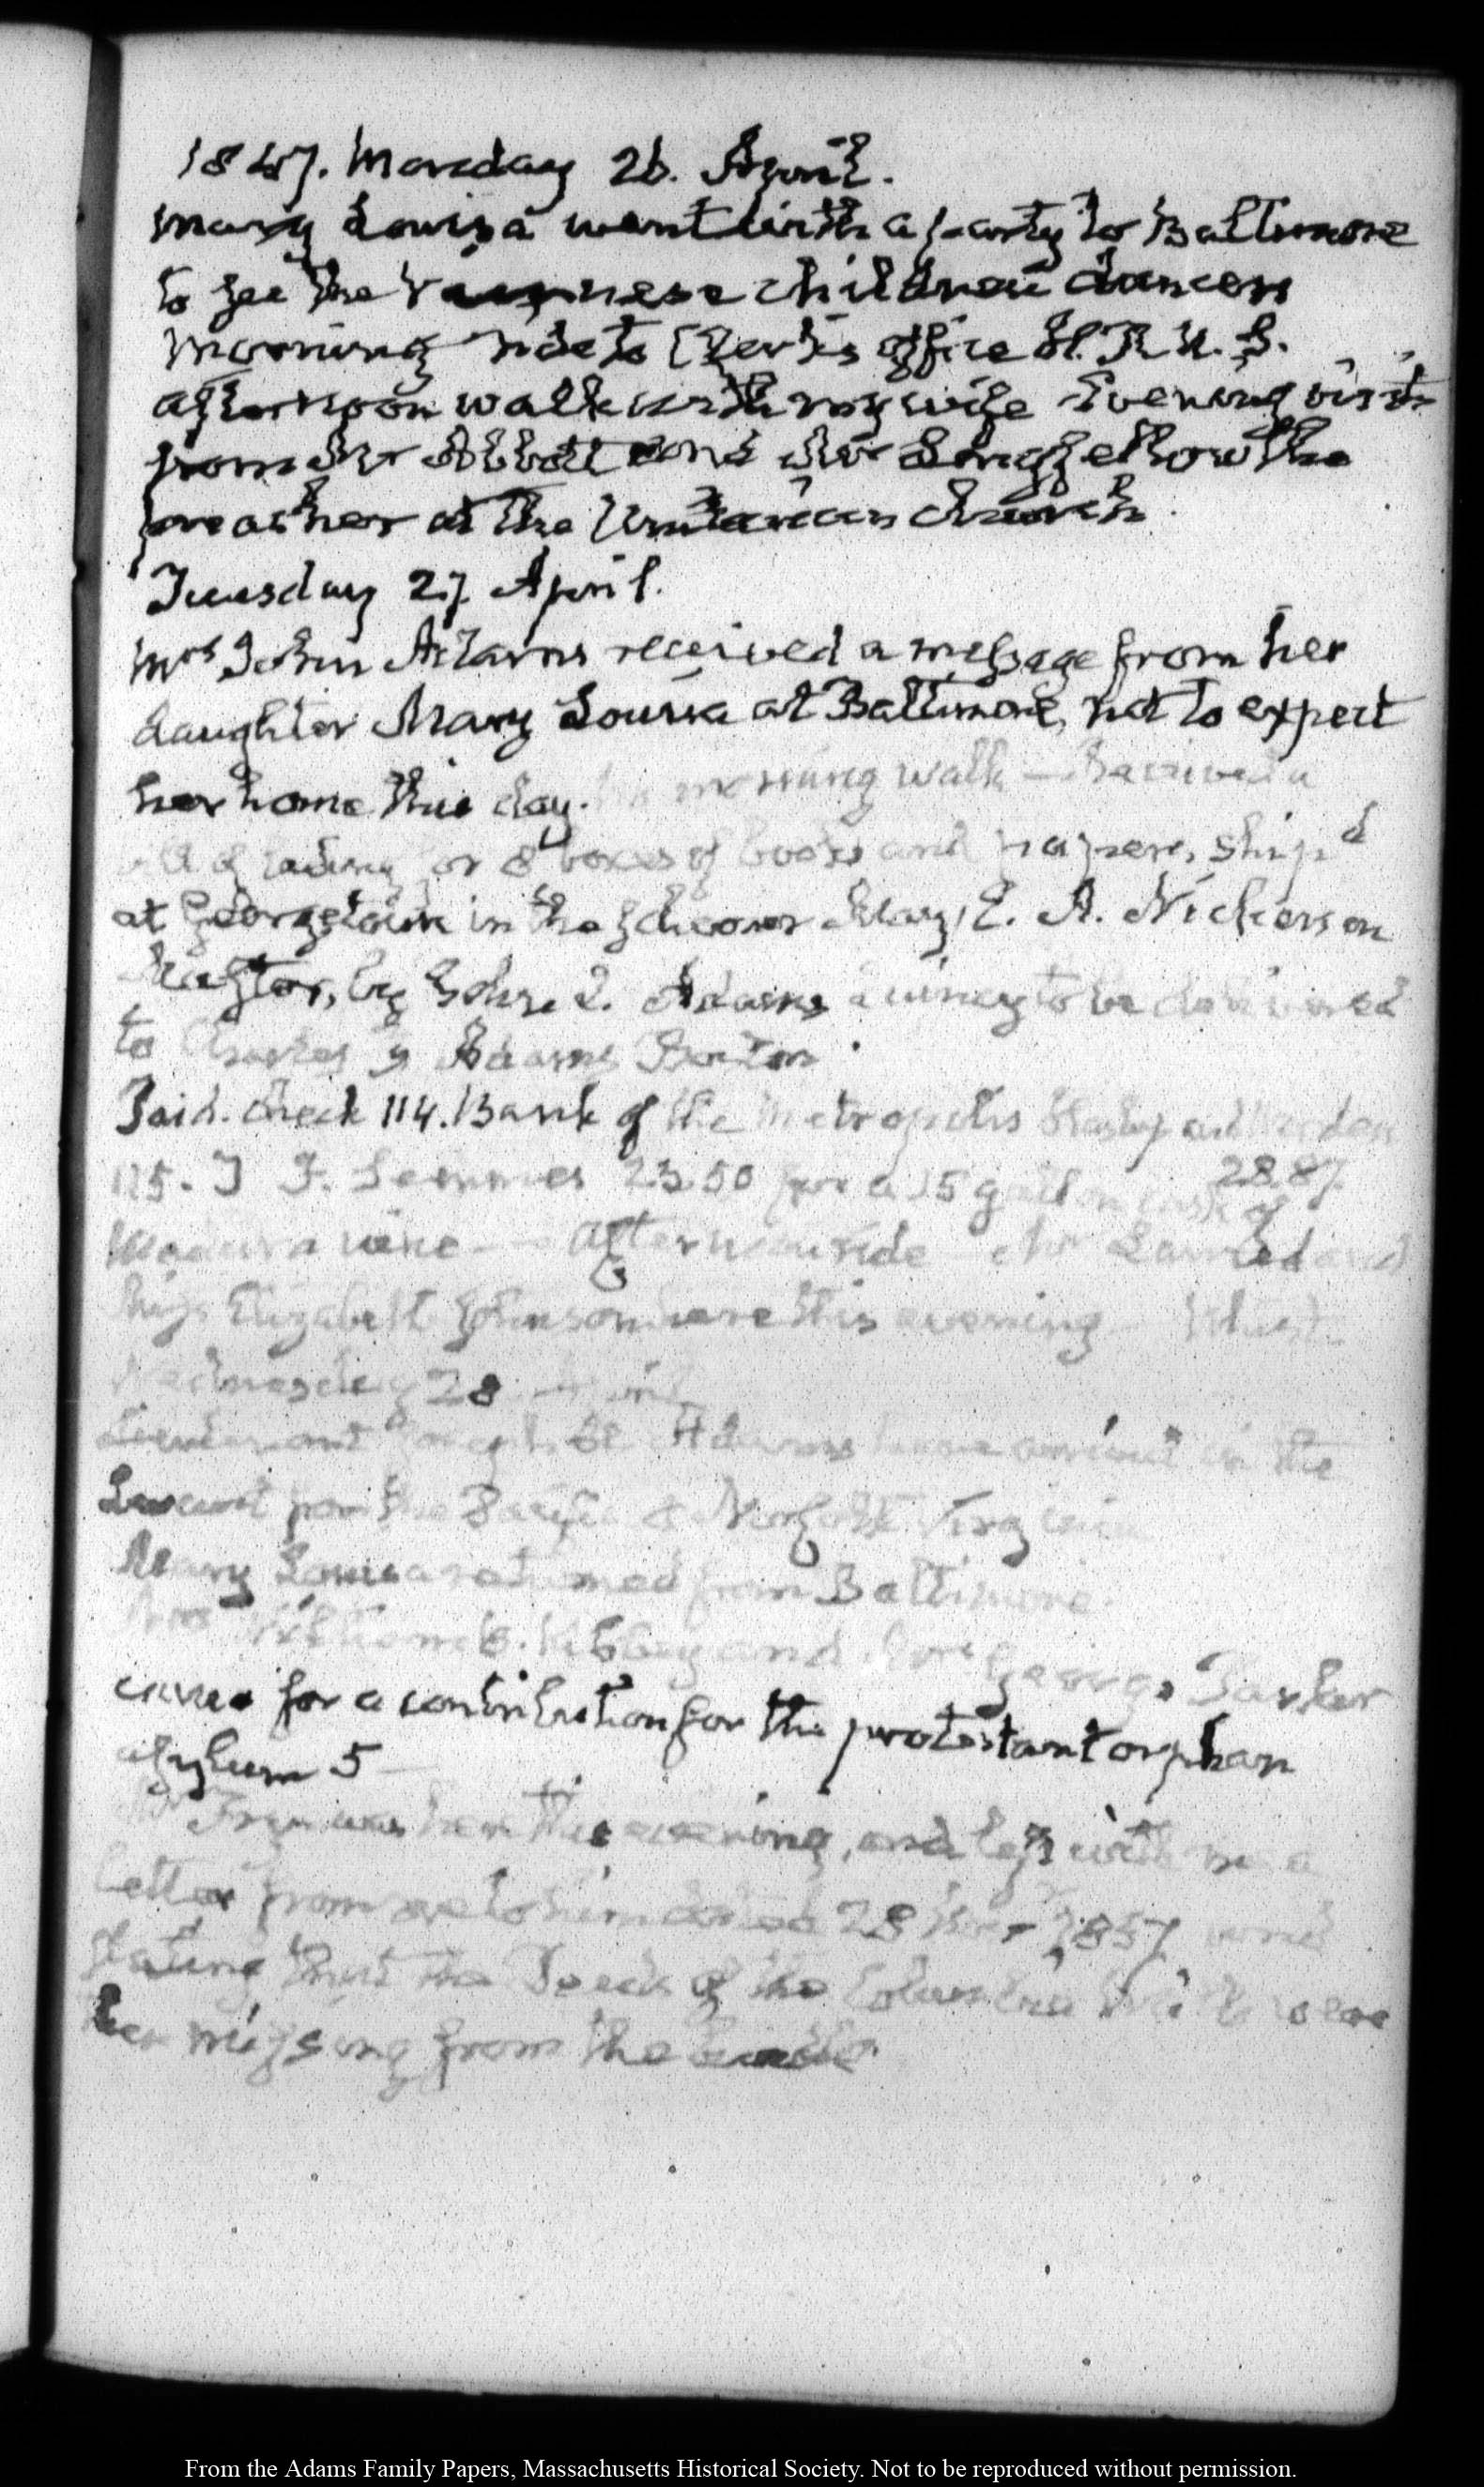 1847. Monday 26. April.
Mary Louisa went with a party to Baltimore
to see the Viennese children dancers
morning ride to Clerk's office H.R.U.S.
afternoon walk with my wife Evening visit
from Mr Abbott and Mr Longfellow the
preacher at the Unitarian Church.
Tuesday 27. April.
Mrs John Adams received a message from her
daughter Mary Louisa at Baltimore, not to expect
her home this day. morning walk — Received a
bill of lading for 8 boxes of books and papers, ship'd
at Georgetown in the Schooner May, E. A. Nickerson
Master, by John Q. Adams Quincy to be delivered
to Charles F Adams Boston.
Paid. Check 114. Bank of the Metropolis
28.87
115. J F. Semmes 23.50 for a 15 gallon cask of
Madeira wine — Afternoon ride Mr and
Miss Elizabeth Johnson here this evening Whist
Wednesday 28 April
Lieutenant Joseph H. Adams in the
for the Pacific at Norfolk Virginia
Mary Louisa returned from Baltimore.
Mrs and Mrs George Parker
came for a contribution for the protestant orphan
asylum 5—
Mr was here this evening, and left with me a
letter from me to him dated 28 and
stating that the of the Columbia were
missing from the